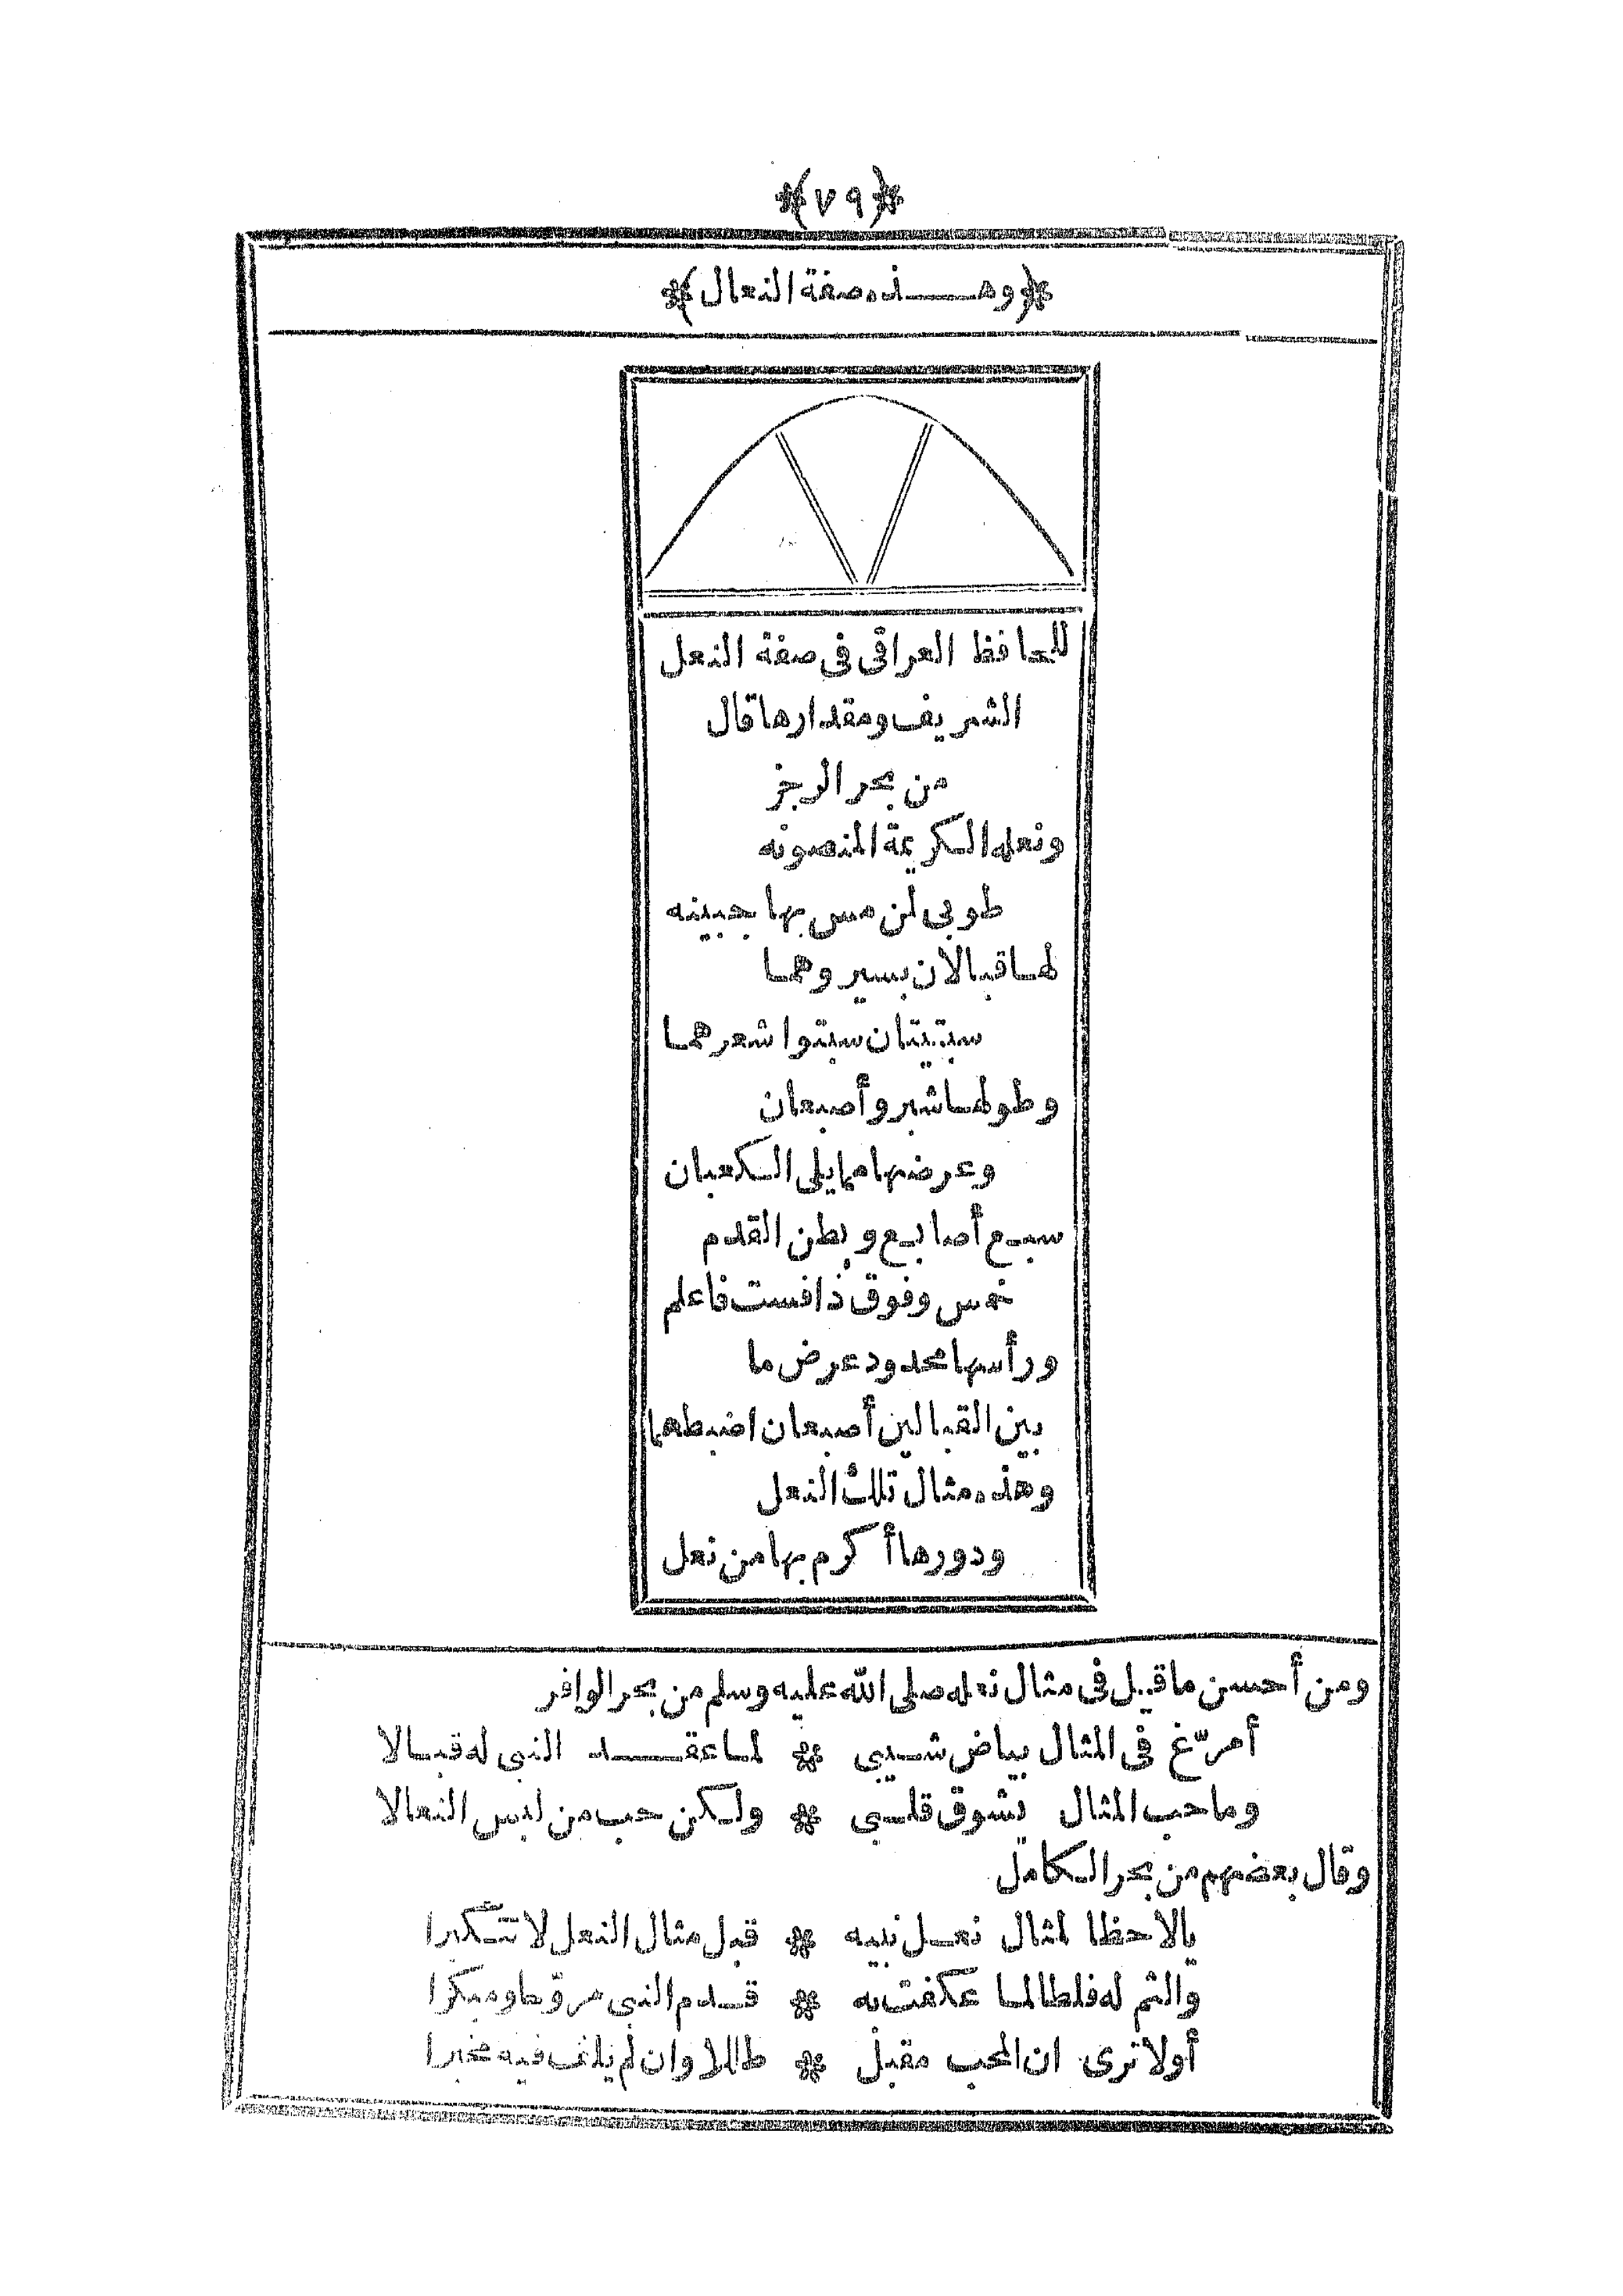 ﴿٧٩﴾
﴿وهـذه صفة النعال﴾
للحافظ العراقى فى صفة النعل
الشريف ومقدارها قال
من بحر الرجز
ونعله الكريمة المنصونه
طوبى لمن مس بها جبينه
لها قبالان بسير وهما
سبتيتان سبتوا شعرهما
وطولها شبر وأصبعان
وعرضها مما يلى الكعبان
سبع أصابع وبطن القدم
خمس وفوق ذا فست فاعلم
ورأسها محدود عرض ما
بين القبالين أصبعان اضبطهما
وهذه مثال تلك النعل
ودورها أكرم بها من نعل
ومن أحسن ماقيل فى مثال نعله صلى الله عليه وسلم من بحر الوافر
أمرّغ فى المثال بياض شيبى * لما عقد النبى له قبالا
وماحب المثال تشوق قلبى * ولكن حب من لبس النعالا
وقال بعضهم من بحر الكامل
يالاحظا لمثال نعل نبيه * قبل مثال النعل لا تتكبرا
والثم له فلطالما عكفت به * قدم النبى مروّحا ومبكرا
أولاترى ان المحب مقبل * طللا وان لم يلف فيه مخبرا